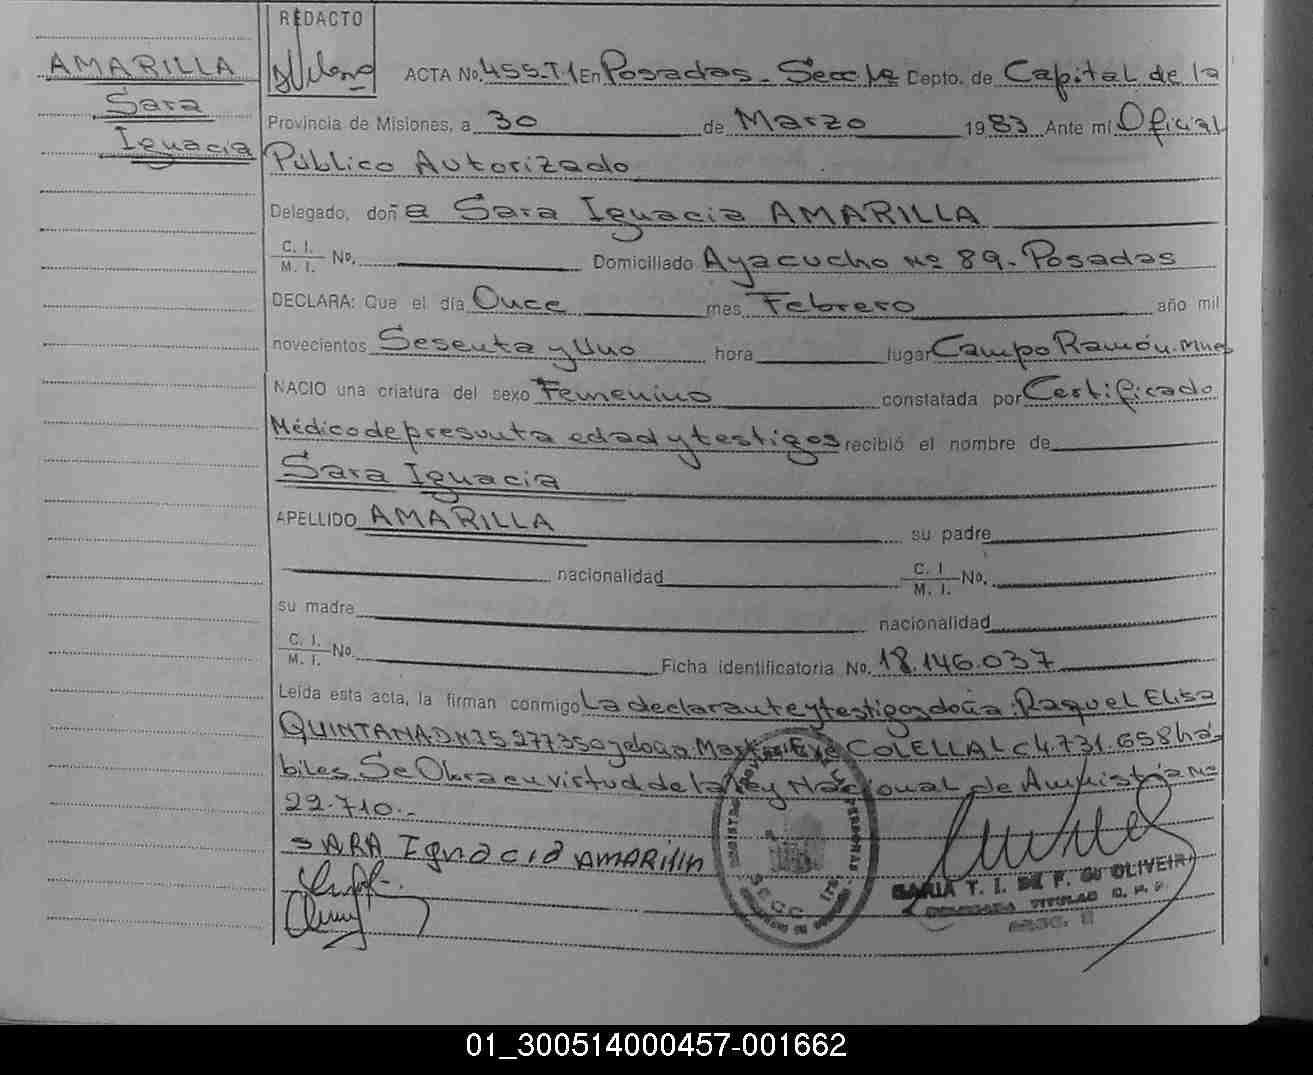 AMARILLA
Sara
Ignacia
REDACTO
ACTA No. 455-T-1 En Posadas - Secc 1ª Depto. de Capital de la
Provincia de Misiones, a 30 de Marzo 1983 Ante mí Oficial
Público Autorizado
Delegado, doña Sara Ignacia AMARILLA
C. I.
M. I. No. Domiciliado Ayacucho Nº 89 - Posadas
DECLARA: Que el día Once mes Febrero año mil
novecientos Sesenta y Uno hora lugar Campo Ramón. Mnes
NACIO una criatura del sexo Femenino constatada por Certificado
Médico de presunta edad y testigos recibió el nombre de
Sara Ignacia
APELLIDO AMARILLA su padre
nacionalidad C. I
M. I. No.
su madre nacionalidad
C. I.
M. I. No. Ficha identificatoria No. 18.146.037
Leída esta acta, la firman conmigo La declarante y testigos doña: Raquel Elisa
QUINTANA y doña COLELLA LC 4.731.658 há-
biles. Se Obra en virtud de la Ley Nacional de Amnistía Nº
22.710.-
SARA Ignacia AMARILLA
T. I. DE F. OLIVEIRA
DELEGADA TITULAR
01_300514000457-001662